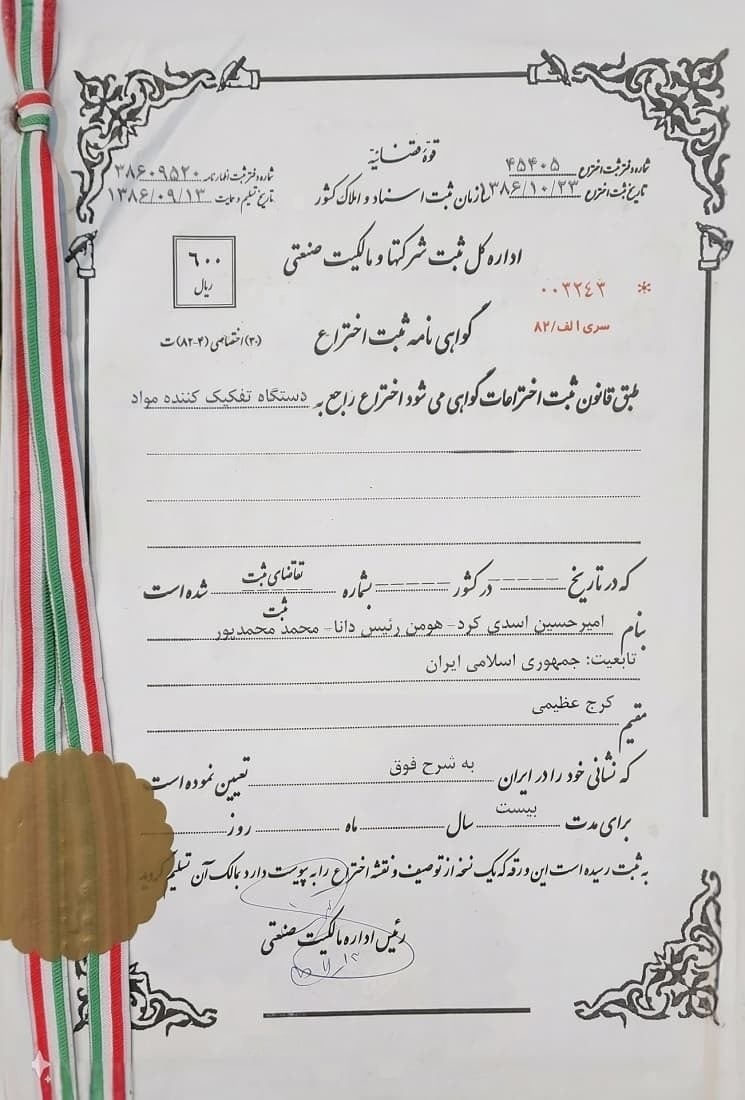 قوهٔ قضائیه
شماره دفتر ثبت اختراع ۴۵۴۰۵
شماره دفتر ثبت اظهارنامه ۳۸۶۰۹۵۲۰
سازمان ثبت اسناد و املاک کشور
تاریخ ثبت اختراع ۳۸۶/۱۰/۲۳
تاریخ تسلیم و حمایت ۱۳۸۶/۰۹/۱۳
اداره کل ثبت شرکتها و مالکیت صنعتی
۶۰۰
ریال
* ۰۰۳۲۴۳
سری الف/۸۲
گواهی نامه ثبت اختراع
(۳۰) اختصاصی (۴-۸۲) ت
طبق قانون ثبت اختراعات گواهی می شود اختراع راجع به دستگاه تفکیک کننده مواد
که در تاریخ ----- در کشور ----- بشماره ----- تقاضای ثبت شده است
ثبت
بنام امیرحسین اسدی کرد- هومن رئیس دانا- محمد محمدپور
تابعیت: جمهوری اسلامی ایران
مقیم کرج عظیمی
که نشانی خود را در ایران به شرح فوق تعیین نموده است
برای مدت بیست سال ماه روز
به ثبت رسیده است این ورقه که یک نسخه از توصیف و نقشه اختراع را به پیوست دارد بمالک آن تسلیم گردید
رئیس اداره مالکیت صنعتی